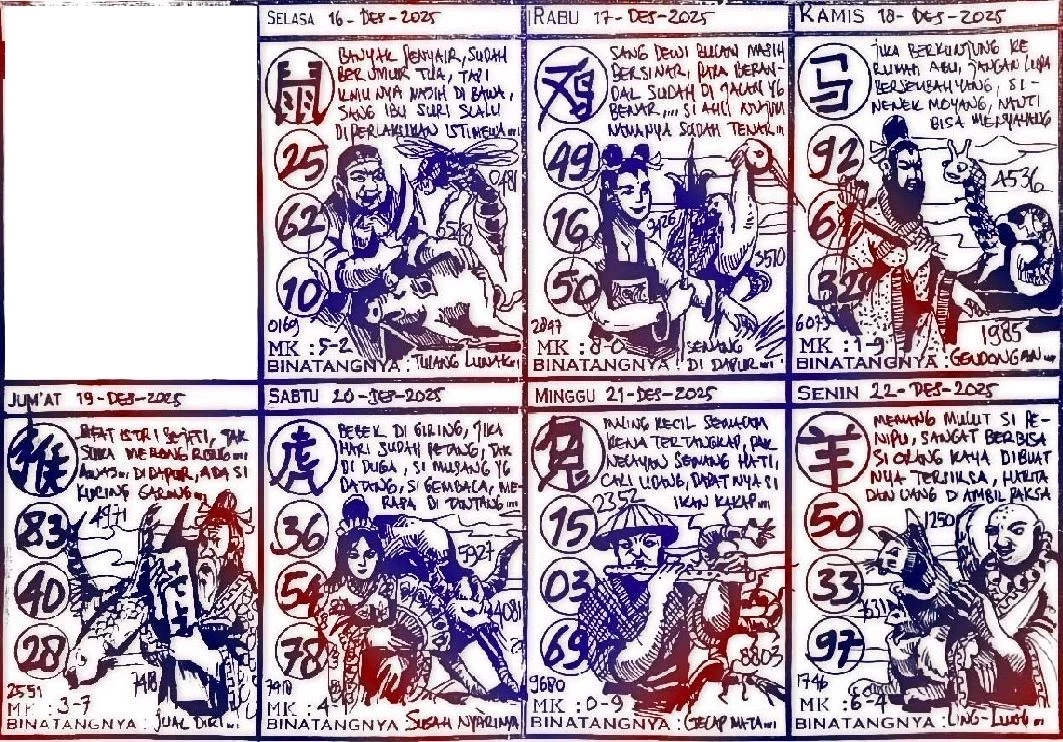 SELASA 16-DES-2025
鼠
BANYAK PENYAIR, SUDAH
BERUMUR TUA, TAPI
ILMU NYA MASIH DI BAWA,
SANG IBU SURI SLALU
DIPERLAKUKAN ISTIMEWA...
25
62
10
0481
6548
0169
MK : 5-2
BINATANGNYA : TULANG LUNAK...
RABU 17-DES-2025
SANG DEWI BULAN MASIH
BERSINAR, PARA BERAN-
DAL SUDAH DI JALAN YG
BENAR,... SI AHLI NUJUM
NAMANYA SUDAH TENAR...
49
16
50
3426
3510
2897
MK : 8-0
BINATANGNYA : SENANG
DI DAPUR...
KAMIS 18-DES-2025
JIKA BERKUNJUNG KE
RUMAH ABU, JANGAN LUPA
BERSEMBAHYANG, SI-
NENEK MOYANG, NANTI
BISA MENYAYANG
92
32
4536
1985
MK : 1-9
BINATANGNYA : GENDONGAN...
JUM'AT 19-DES-2025
猴
SUKA
DI DAPUR, ADA SI
KUCING GARONG...
83
40
28
4971
2551
MK : 3-7
BINATANGNYA : JUAL DIRI...
SABTU 20-DES-2025
虎
BEBEK DI GIRING, JIKA
HARI SUDAH PETANG, TAK
DI DUGA, SI MUSANG YG
DATANG, SI GEMBALA, ME-
RASA DI TANTANG...
36
54
78
5927
4081
7918
MK : 4-1
BINATANGNYA : SUSAH NYARINYA
MINGGU 21-DES-2025
兔
MALING KECIL SEMACAM
KENA TERTANGKAP, PAK
NELAYAN SENANG HATI,
CARI UDANG, DAPATNYA SI
IKAN KAKAP...
2352
15
03
69
8803
9680
MK : 0-9
BINATANGNYA : GELAP MATA...
SENIN 22-DES-2025
羊
MEMANG MULUT SI PE-
NIPU, SANGAT BERBISA
SI ORANG KAYA DIBUAT
NYA TERSIKSA, HARTA
DAN UANG DI AMBIL PAKSA
50
33
97
1250
6311
1746
MK : 6-4
BINATANGNYA : LING-LUNG...